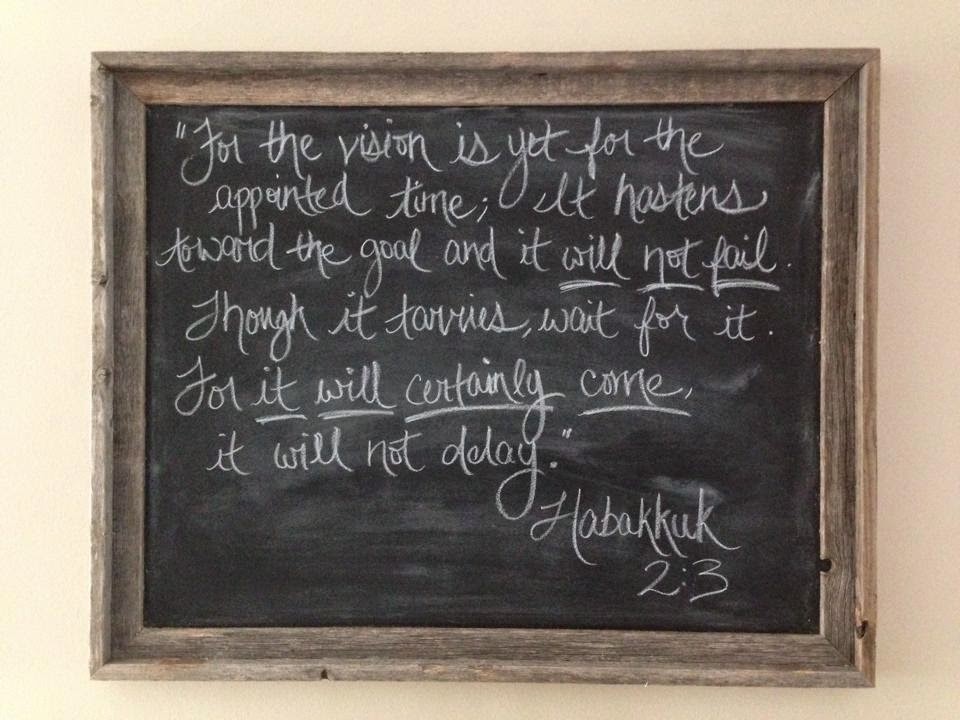 "For the vision is yet for the
appointed time; It hastens
toward the goal and it will not fail.
Though it tarries, wait for it.
For it will certainly come,
it will not delay."
Habakkuk
2:3